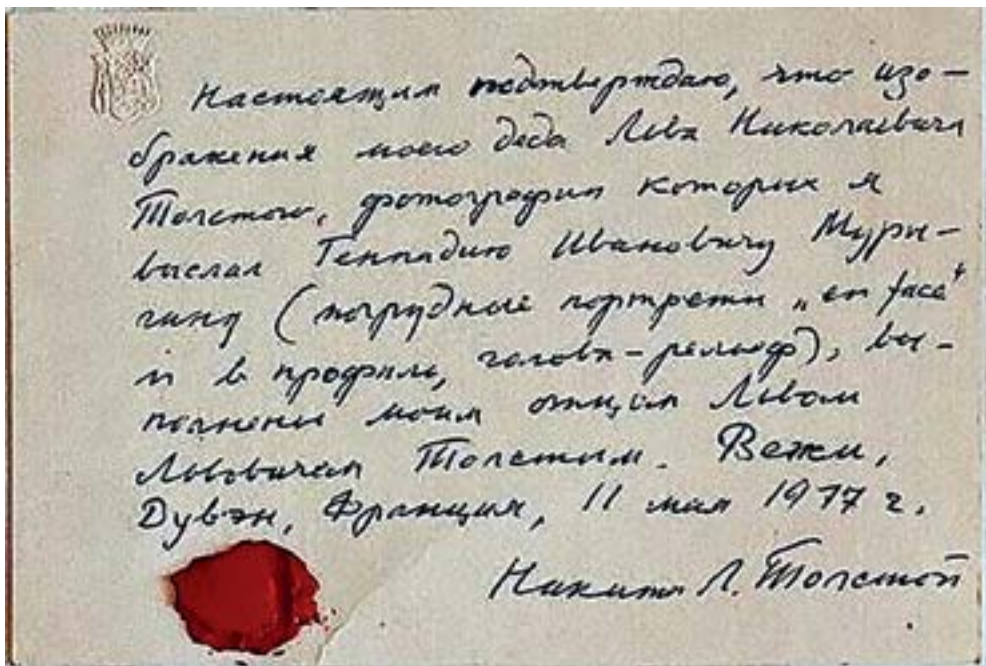 Настоящим подтверждаю, что изо-
бражения моего деда Льва Николаевича
Толстого, фотографии которых я
выслал Геннадию Ивановичу Муры-
гину (погрудные портреты „en face“
и в профиль, голова-рельеф), вы-
полнены моим отцом Львом
Львовичем Толстым. Вежи,
Дувэн, Франция, 11 мая 1977 г.
Никита Л. Толстой